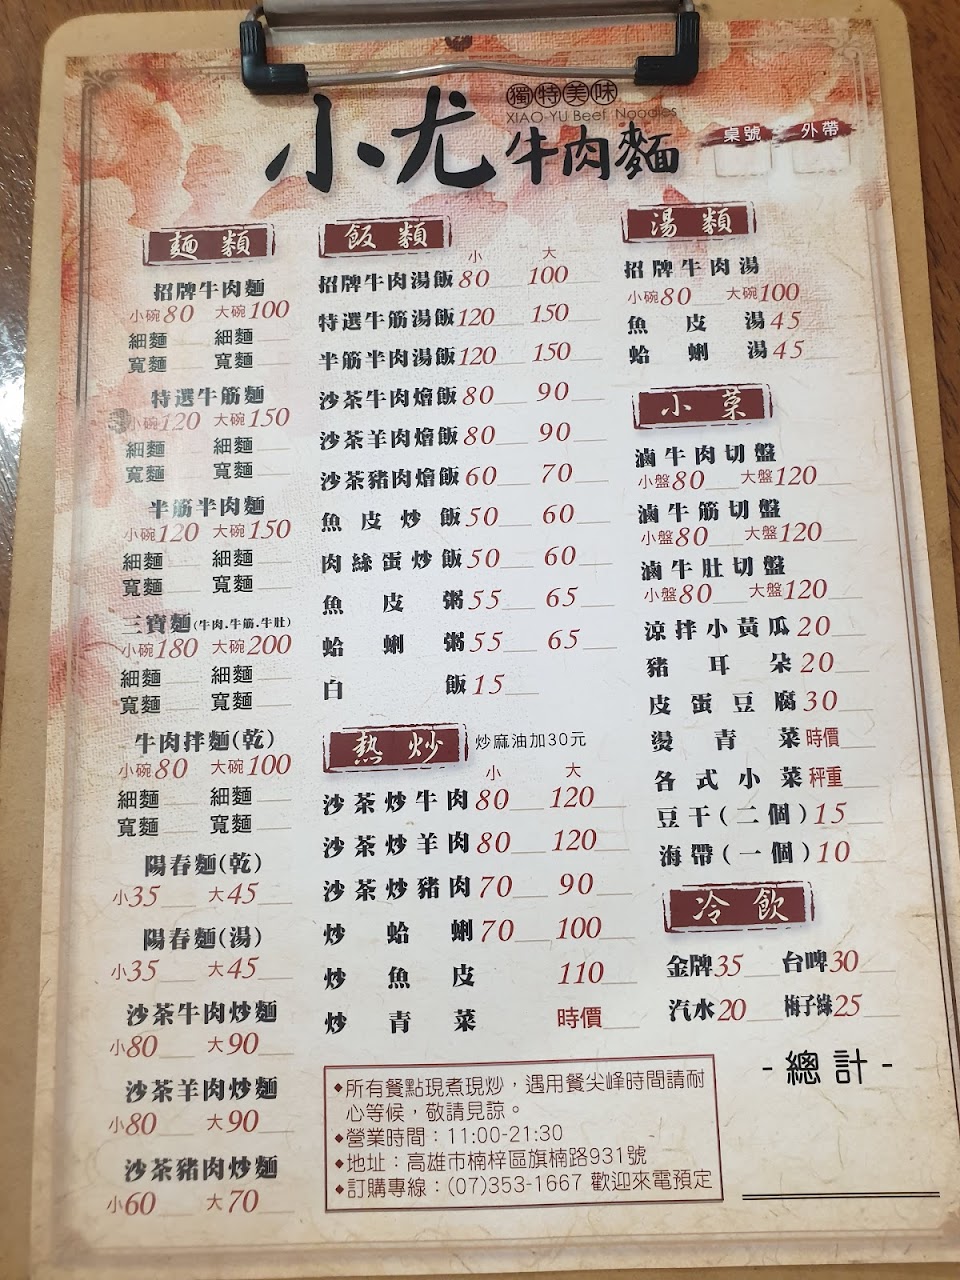 獨特美味
XIAO-YU Beef Noodles
小尤牛肉麵
桌號 外帶
麵類
招牌牛肉麵
小碗80 大碗100
細麵 細麵
寬麵 寬麵
特選牛筋麵
小碗120 大碗150
細麵 細麵
寬麵 寬麵
半筋半肉麵
小碗120 大碗150
細麵 細麵
寬麵 寬麵
三寶麵(牛肉.牛筋.牛肚)
小碗180 大碗200
細麵 細麵
寬麵 寬麵
牛肉拌麵(乾)
小碗80 大碗100
細麵 細麵
寬麵 寬麵
陽春麵(乾)
小35 大45
陽春麵(湯)
小35 大45
沙茶牛肉炒麵
小80 大90
沙茶羊肉炒麵
小80 大90
沙茶豬肉炒麵
小60 大70
飯類
小 大
招牌牛肉湯飯80 100
特選牛筋湯飯120 150
半筋半肉湯飯120 150
沙茶牛肉燴飯80 90
沙茶羊肉燴飯80 90
沙茶豬肉燴飯60 70
魚皮炒飯50 60
肉絲蛋炒飯50 60
魚皮粥55 65
蛤蜊粥55 65
白飯15
熱炒 炒麻油加30元
小 大
沙茶炒牛肉80 120
沙茶炒羊肉80 120
沙茶炒豬肉70 90
炒蛤蜊70 100
炒魚皮 110
炒青菜 時價
湯類
招牌牛肉湯
小碗80 大碗100
魚皮湯45
蛤蜊湯45
小菜
滷牛肉切盤
小盤80 大盤120
滷牛筋切盤
小盤80 大盤120
滷牛肚切盤
小盤80 大盤120
涼拌小黃瓜20
豬耳朵20
皮蛋豆腐30
燙青菜時價
各式小菜秤重
豆干(二個)15
海帶(一個)10
冷飲
金牌35 台啤30
汽水20 梅子綠25
-總計-
◆所有餐點現煮現炒，遇用餐尖峰時間請耐
心等候，敬請見諒。
◆營業時間：11:00-21:30
◆地址：高雄市楠梓區旗楠路931號
◆訂購專線：(07)353-1667 歡迎來電預定